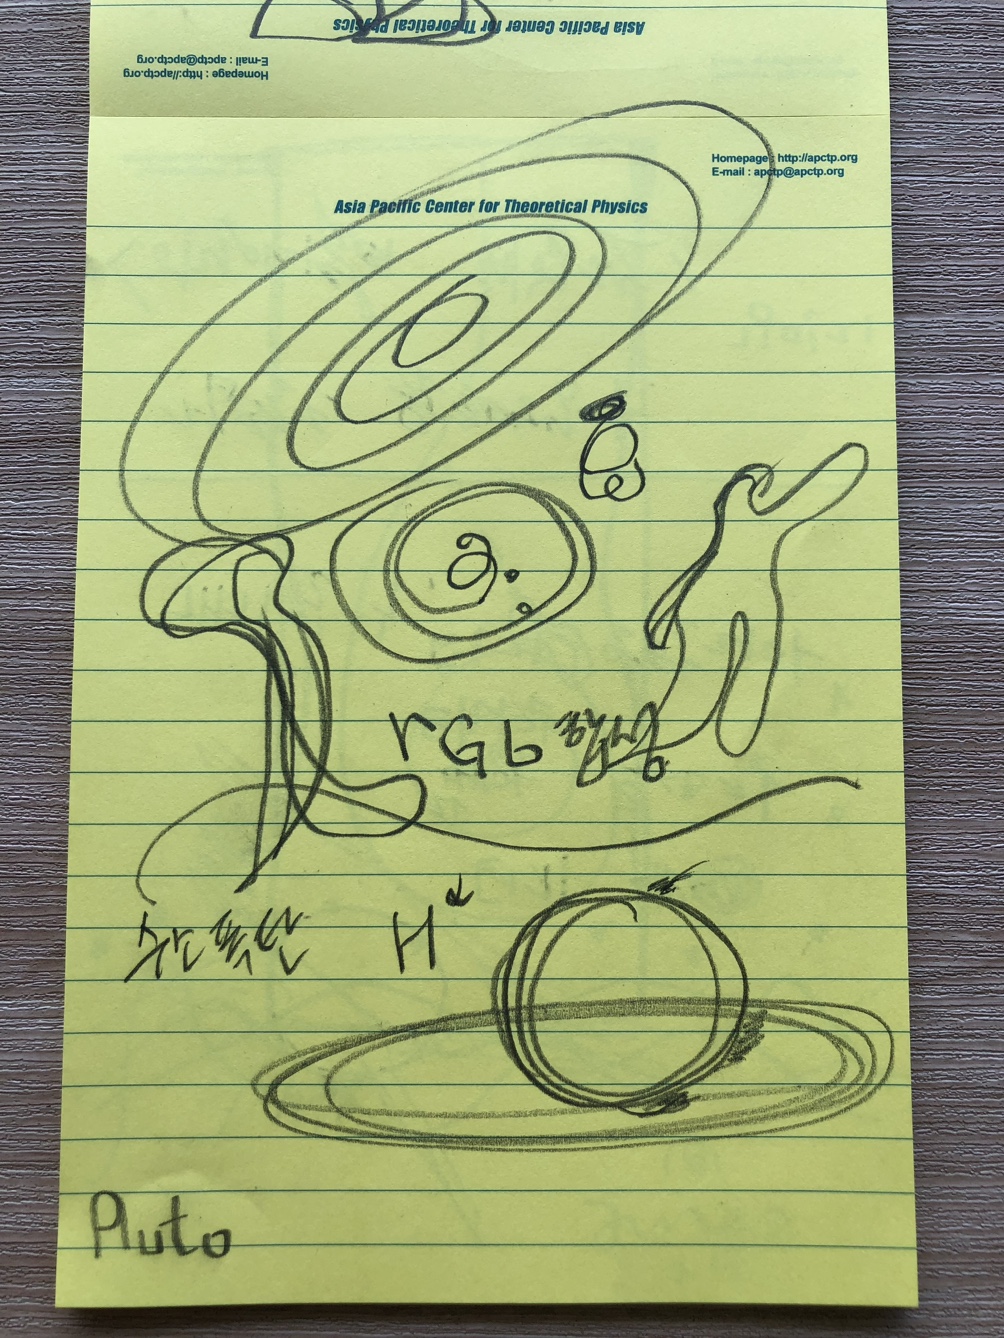 Asia Pacific Center for Theoretical Physics
E-mail : apctp@apctp.org
Homepage : http://apctp.org
Homepage : http://apctp.org
E-mail : apctp@apctp.org
Asia Pacific Center for Theoretical Physics
a.
rGb
수소폭탄 H
Pluto